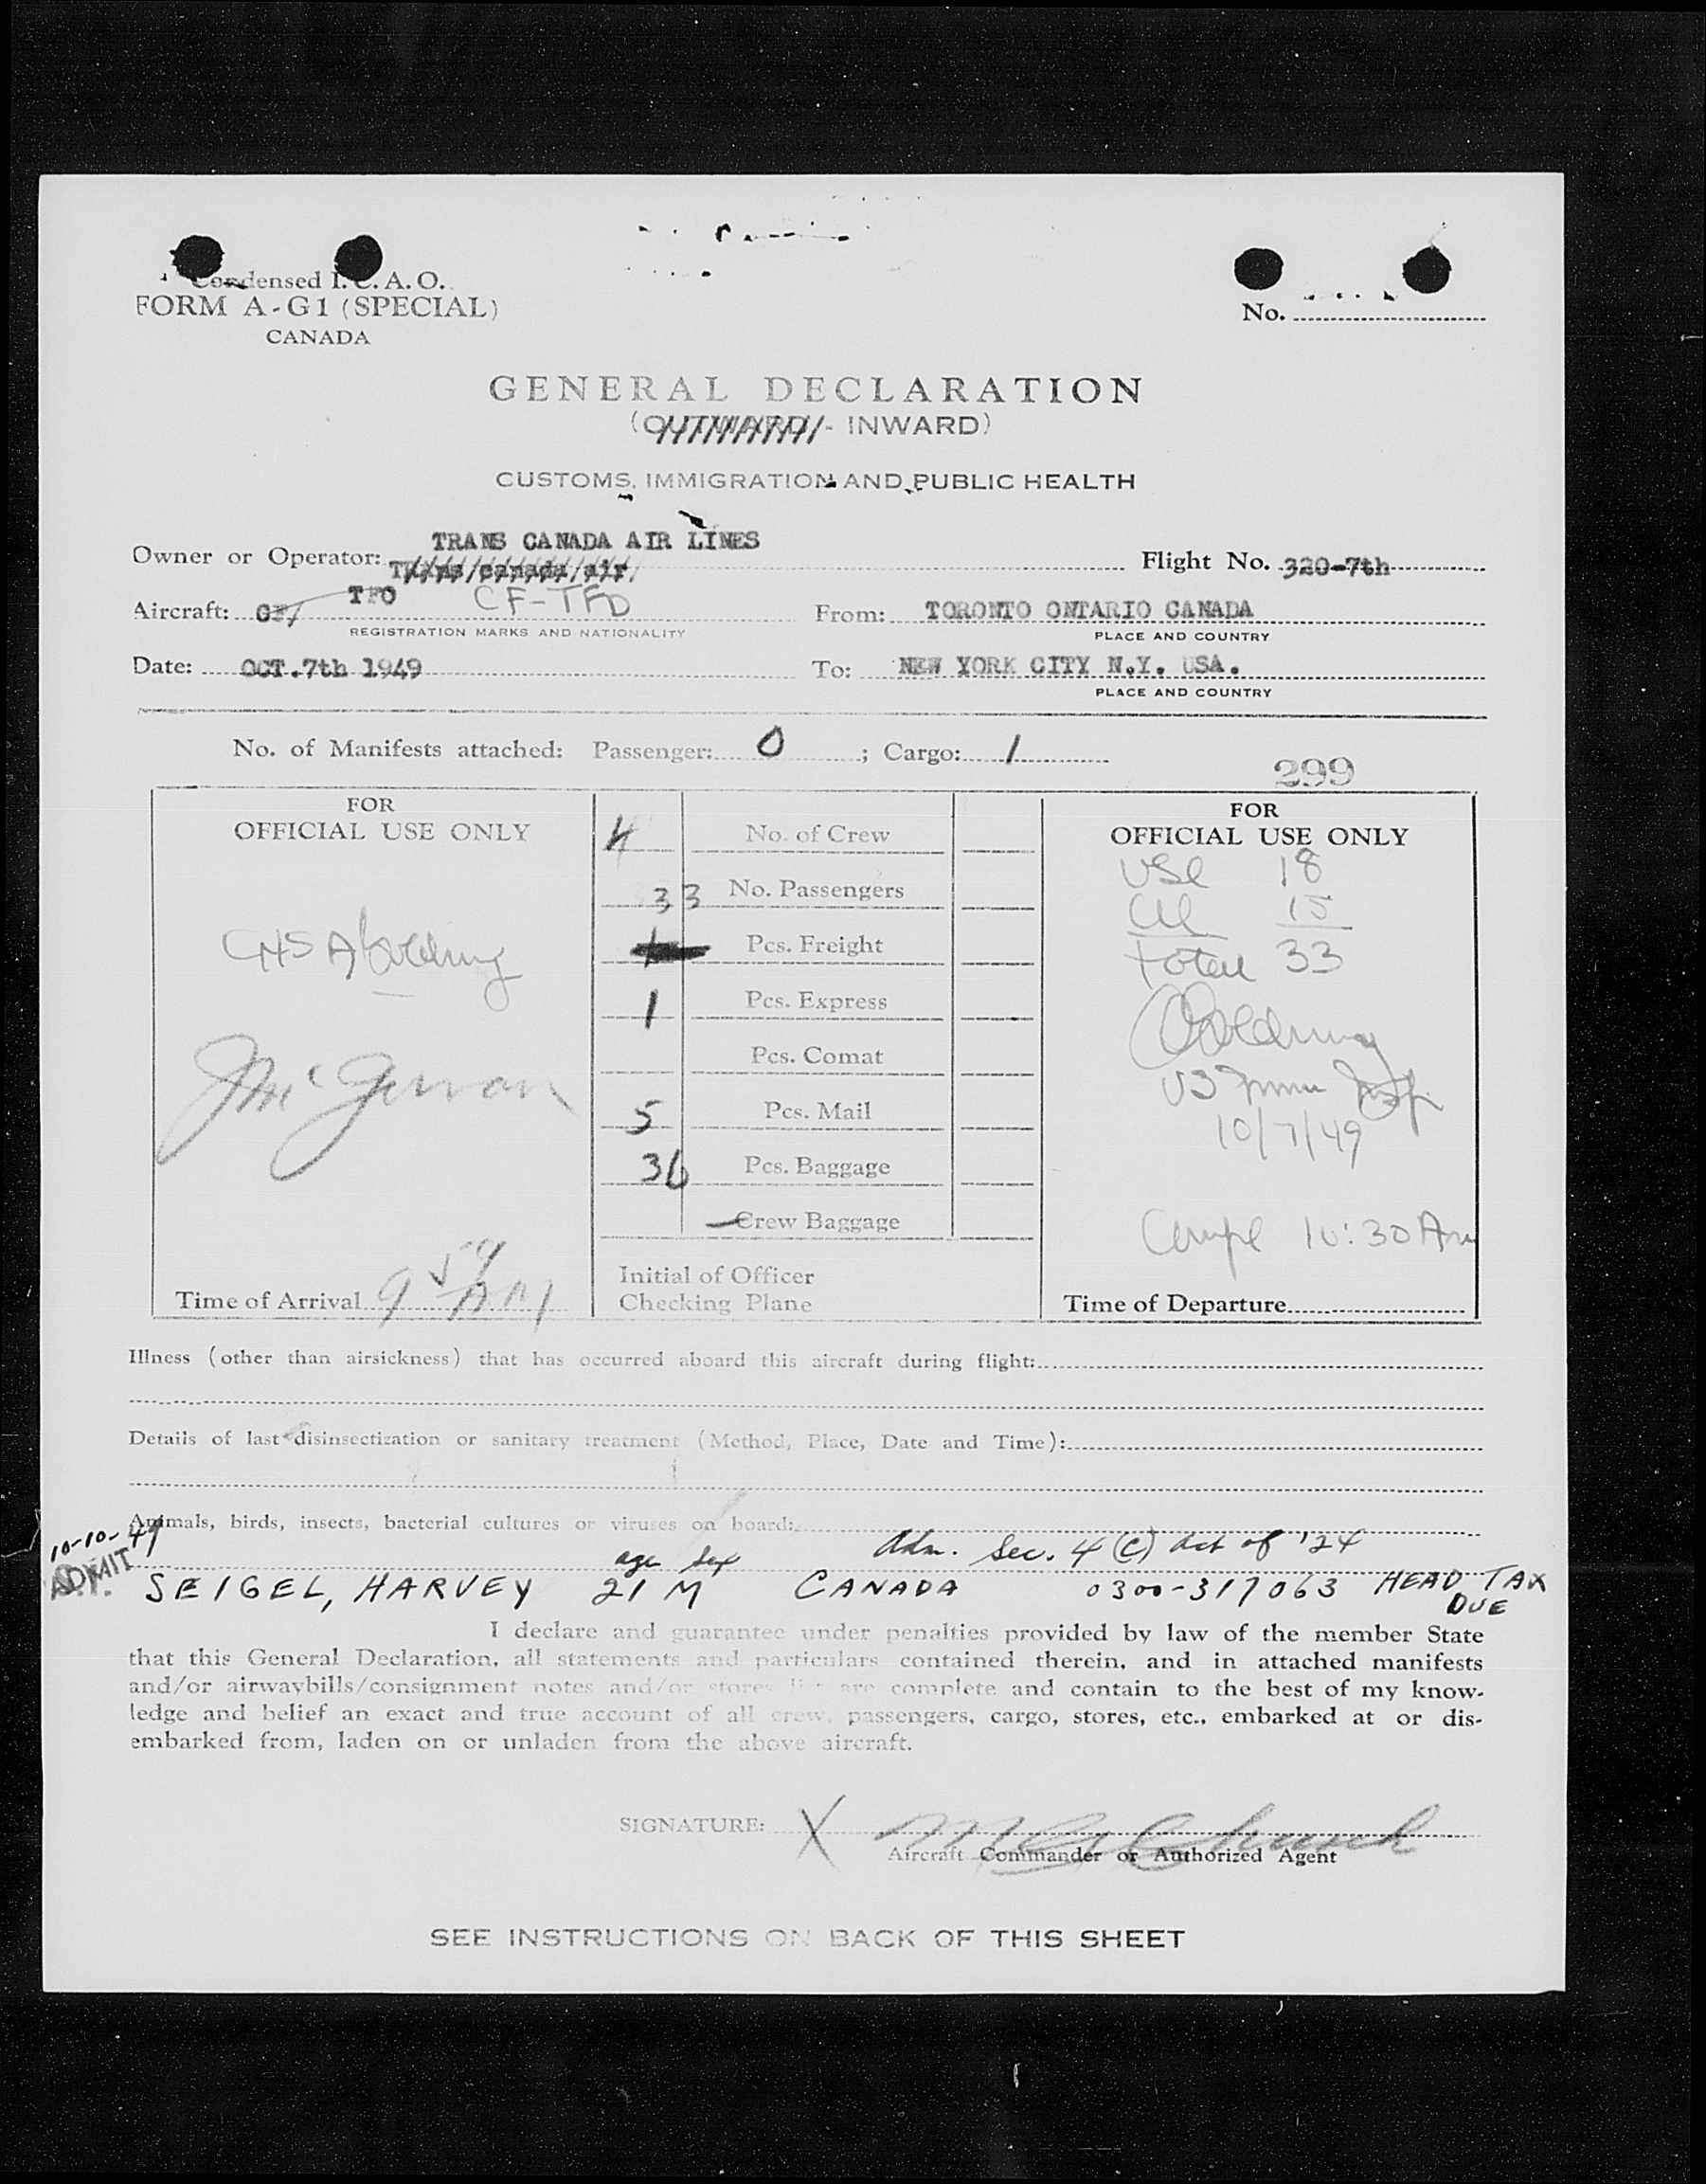 Condensed I.C.A.O.
FORM A-G1 (SPECIAL)
CANADA
No.
GENERAL DECLARATION
(OUTWARD - INWARD)
CUSTOMS, IMMIGRATION AND PUBLIC HEALTH
TRANS CANADA AIR LINES
Owner or Operator: Trans/canada/air/ Flight No. 320-7th
TFO CF-TFD
Aircraft: CF/ From: TORONTO ONTARIO CANADA
REGISTRATION MARKS AND NATIONALITY PLACE AND COUNTRY
Date: OCT.7th 1949 To: NEW YORK CITY N.Y. USA.
PLACE AND COUNTRY
No. of Manifests attached: Passenger: 0 ; Cargo: 1
299
FOR
OFFICIAL USE ONLY
4 No. of Crew
33 No. Passengers
Pcs. Freight
1 Pcs. Express
Pcs. Comat
5 Pcs. Mail
36 Pcs. Baggage
Crew Baggage
Initial of Officer
Checking Plane
Time of Arrival 9 59 AM
FOR
OFFICIAL USE ONLY
USC 18
15
Total 33
10/7/49
Compl 10:30 Am
Time of Departure
Illness (other than airsickness) that has occurred aboard this aircraft during flight:
Details of last disinsectization or sanitary treatment (Method, Place, Date and Time):
Animals, birds, insects, bacterial cultures or viruses on board:
10-10-49
ADMIT
age Sex Adm. Sec. 4 (C) Act of '24
SEIGEL, HARVEY 21 M CANADA 0300-317063 HEAD TAX
DUE
I declare and guarantee under penalties provided by law of the member State
that this General Declaration, all statements and particulars contained therein, and in attached manifests
and/or airwaybills/consignment notes and/or stores list are complete and contain to the best of my know-
ledge and belief an exact and true account of all crew, passengers, cargo, stores, etc., embarked at or dis-
embarked from, laden on or unladen from the above aircraft.
SIGNATURE: X
Aircraft Commander or Authorized Agent
SEE INSTRUCTIONS ON BACK OF THIS SHEET